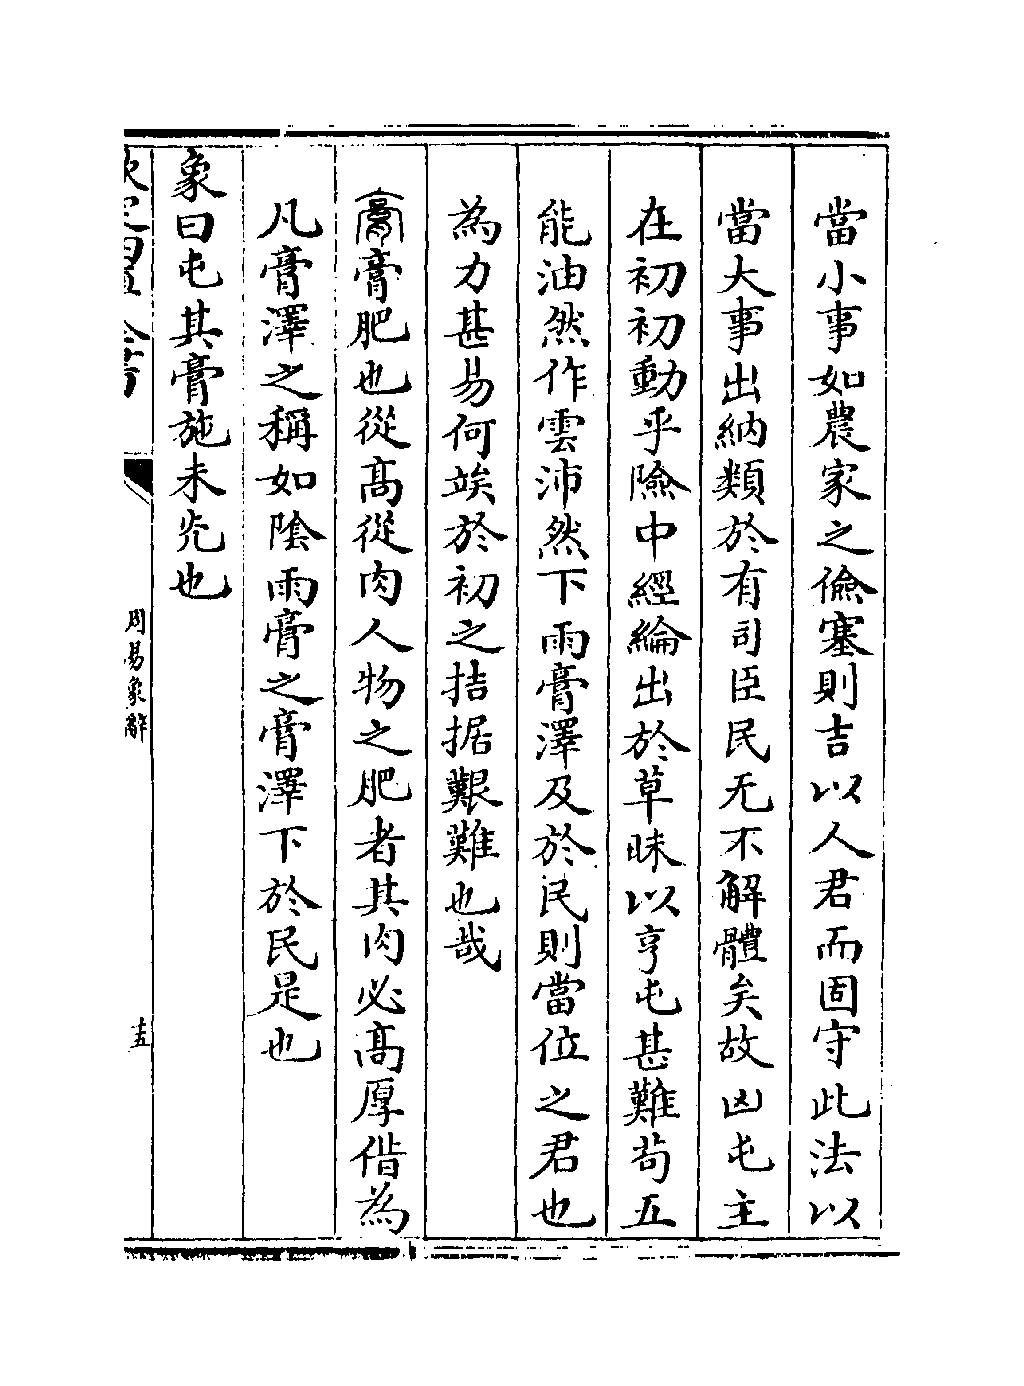 當小事如農家之儉塞則吉以人君而固守此法以
當大事出納類於有司臣民无不解體矣故凶屯主
在初初動乎險中經綸出於草昧以亨屯甚難茍五
能油然作雲沛然下雨膏澤及於民則當位之君也
為力甚易何竢於初之拮据艱難也哉
膏膏肥也從高從肉人物之肥者其肉必高厚偕為
凡膏澤之稱如陰雨膏之膏澤下於民是也
象曰屯其膏施未光也
周易象辭
十五